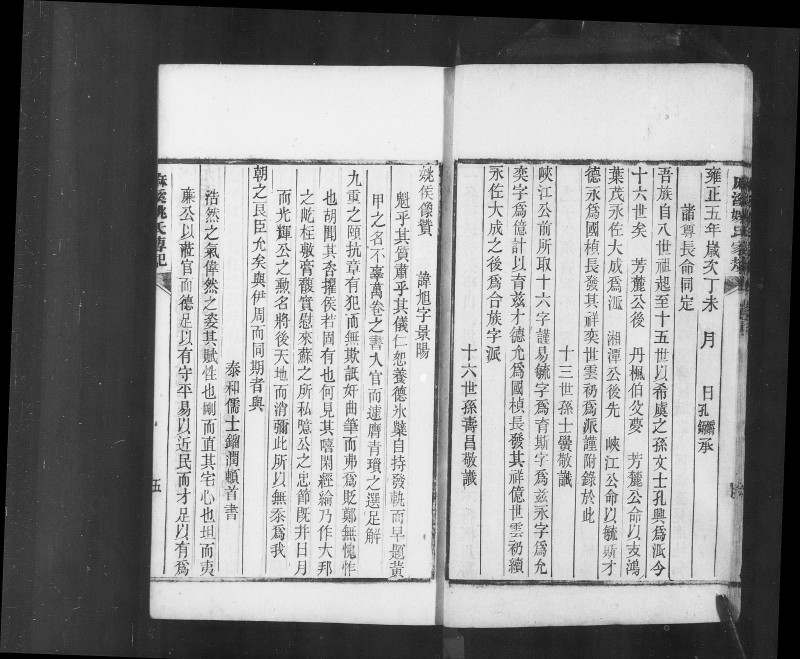 麻溪姚氏家乘
雍正五年歲次丁未 月 日孔鏽承
諸尊長命同定
吾族自八世祖起至十五世以希虞之孫文士孔興爲派今
十六世矣 芳麓公後 丹楓伯攵夢 芳麓公命以支鴻
葉茂永佐大成爲派 湘潭公後先 峽江公命以毓斯才
德永爲國楨長發其祥奕世雲礽爲派謹附錄於此
十三世孫士黌敬識
峽江公前所取十六字謹易毓字爲育斯字爲兹永字爲允
奕字爲億計以育兹才德允爲國楨長發其祥億世雲礽續
永佐大成之後爲合族字派
十六世孫壽昌敬識
姚侯像贊 諱旭字景陽
魁乎其質肅乎其儀仁恕養德氷櫱自持發軌而早題黃
甲之名不辜萬卷之書入官而遽膺青瑣之選足解
九重之頤抗章有犯而無欺詆奸曲筆而弗爲貶鄭無愧怍
也胡聞其呑擢侯若固有也何見其嘻閑經綸乃作大邦
之屹柱敬膏馥實慰來蘇之所私臆公之忠節旣幷日月
而光輝公之勳名將後天地而消彌此所以無忝爲我
朝之良臣允矣與伊周而同期者與
泰和儒士鎦潤頓首書
浩然之氣偉然之姿其賦性也剛而直其宅心也坦而夷
廉公以蒞官而德足以有守平易以近民而才足以有爲
麻溪姚氏傳記
五